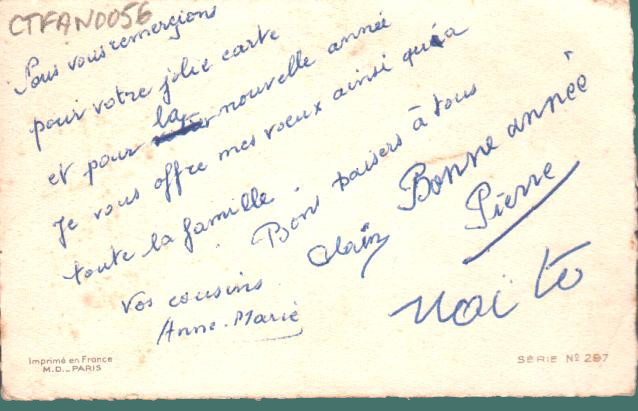 CTFAN0056
Nous vous remerçions
pour votre jolie carte
et pour la nouvelle année
Je vous offre mes voeux ainsi qu'a
toute la famille.
Bons baisers à tous
Vos cousins
Anne-Marie
Alain
Bonne année
Pierre
Imprimé en France
M.D._PARIS
SÉRIE Nº 297